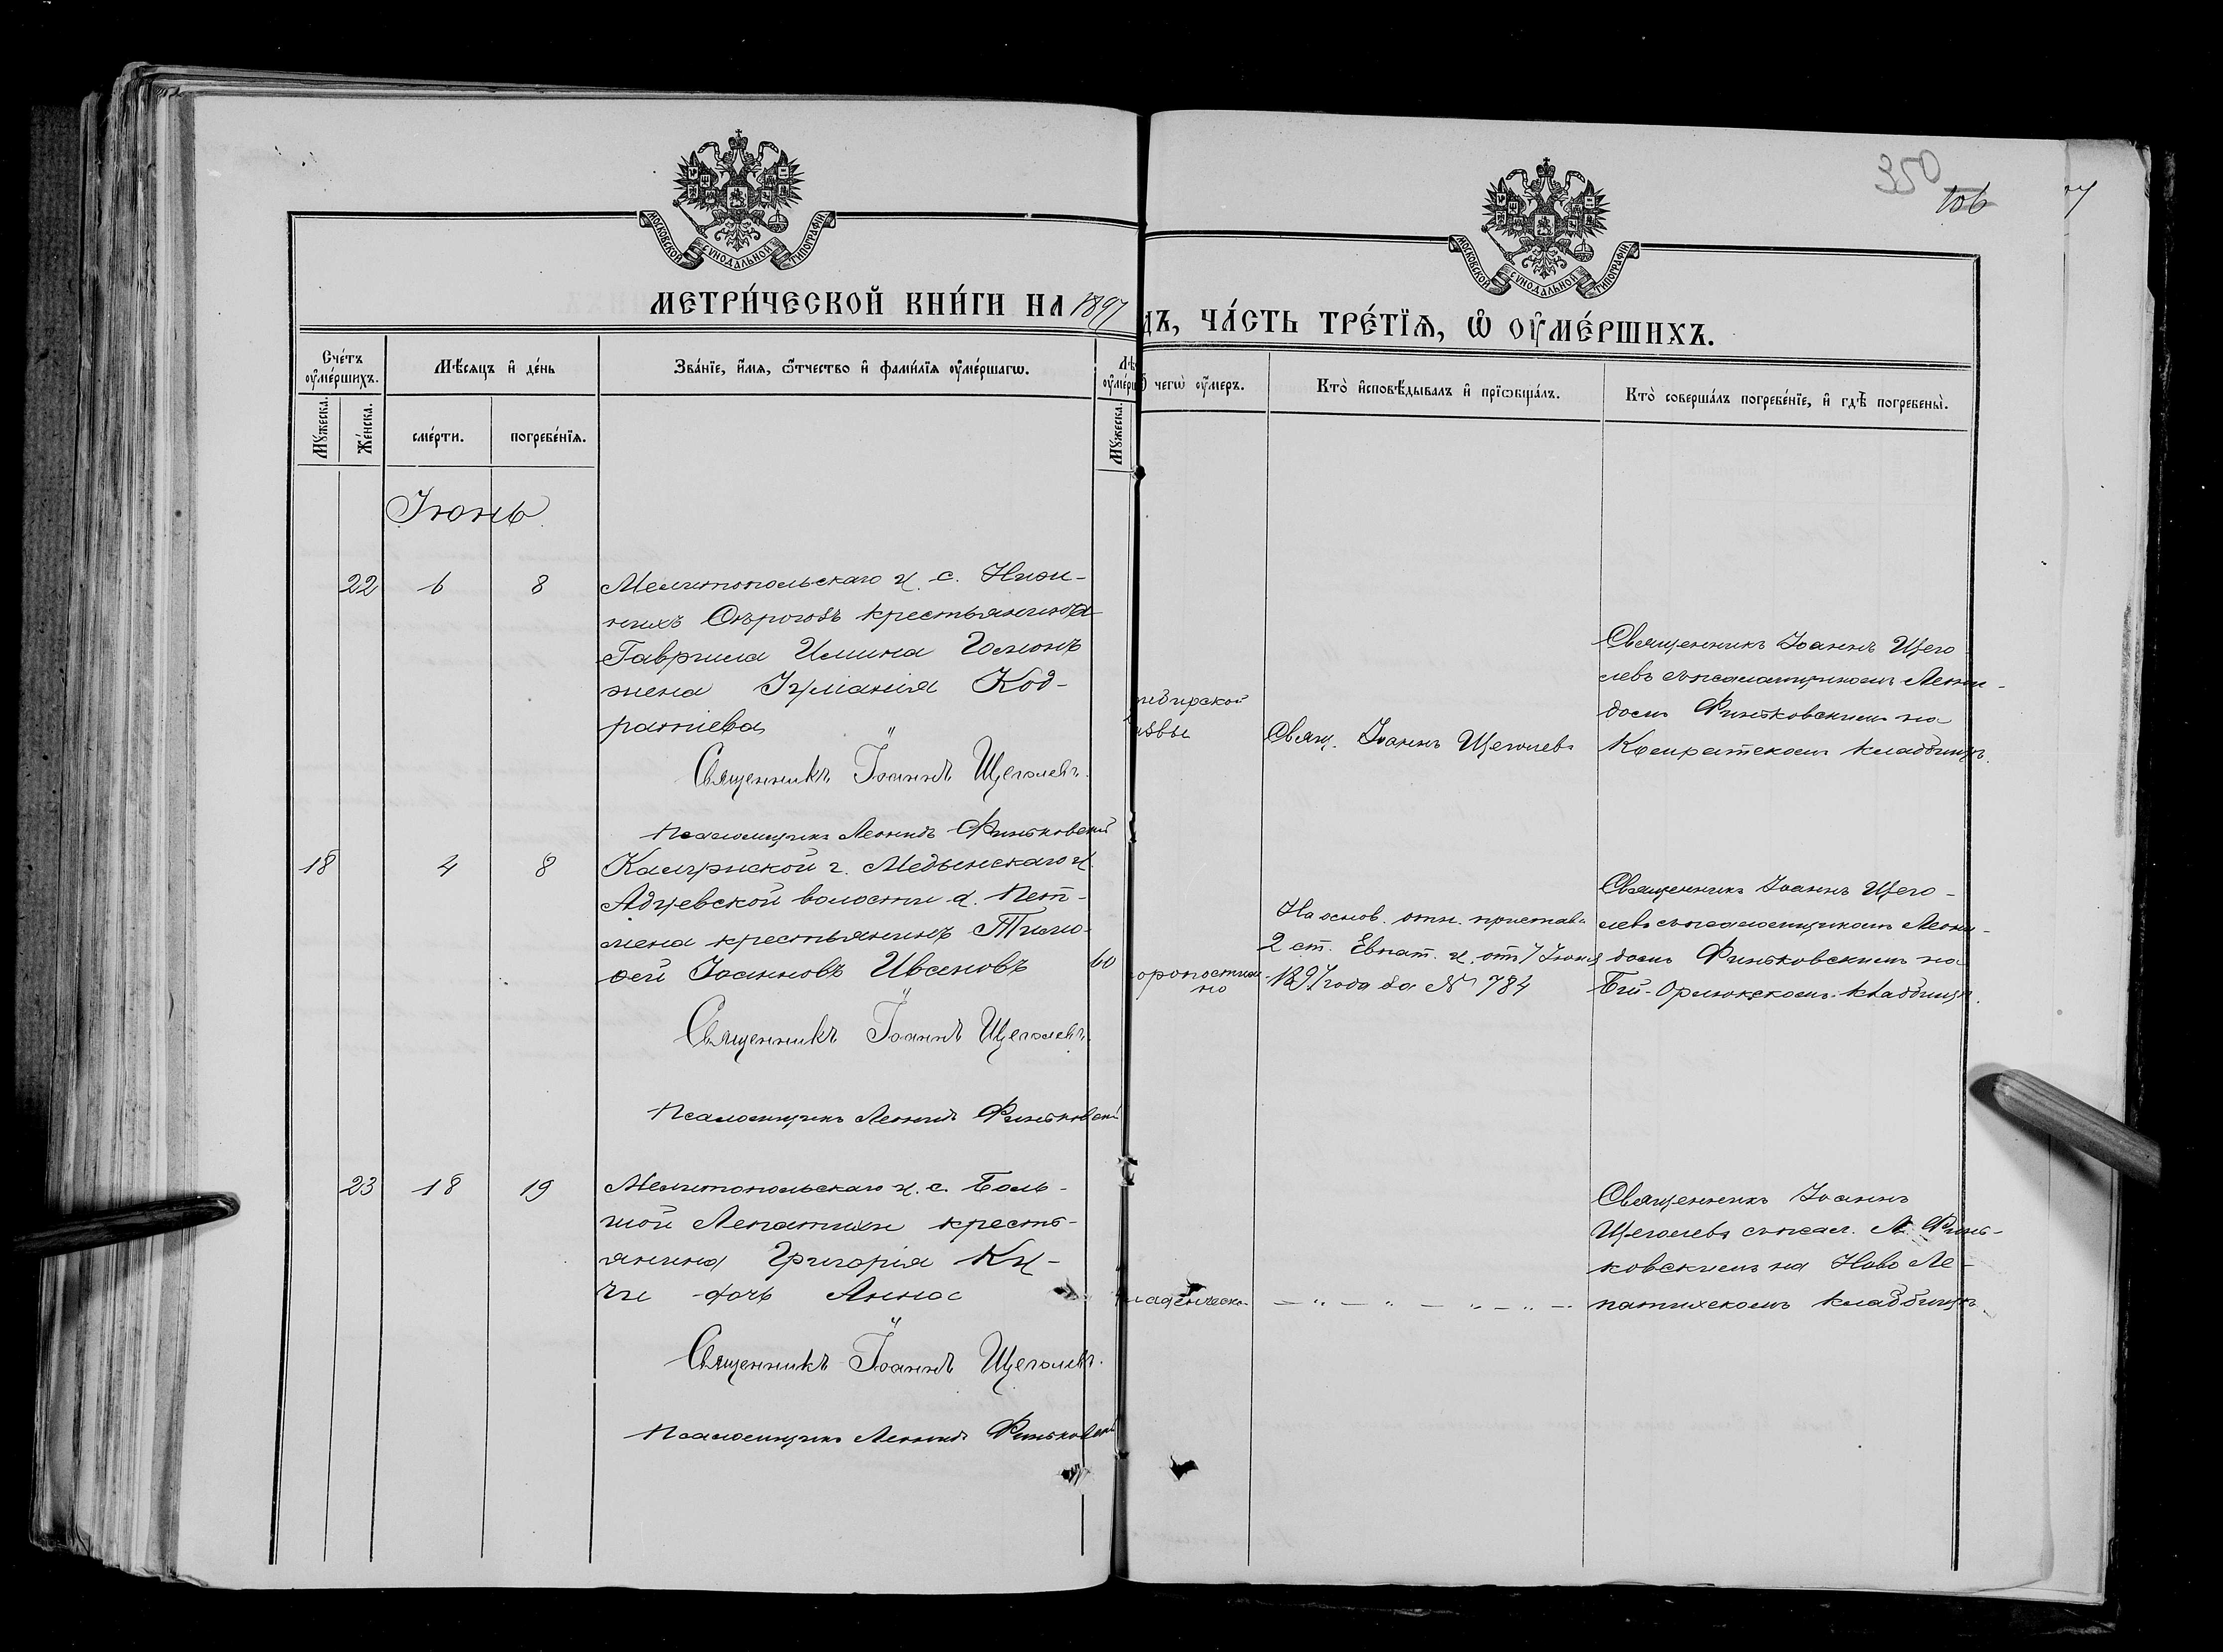 350
106
МОСКОВСКОЙ СѴНОДАЛЬНОЙ ТИПОГРАФІИ
МОСКОВСКОЙ СѴНОДАЛЬНОЙ ТИПОГРАФІИ
МЕТРИ́ЧЕСКОЙ КНИ́ГИ НА 1897
ДЪ, ЧА́СТЬ ТРЕ́ТІѦ, Ѡ ОУМЕ́РШИХЪ.
Сче́тъ оуме́ршихъ.
Мѣ́сяцъ и де́нь
Зва́нїе, и́мя, ѻ́тчество и фами́лїя оуме́ршагѡ.
чегѡ̀ оу́меръ.
Кто̀ исповѣ́дывалъ и прїѡбща́лъ.
Кто̀ соверша́лъ погребе́нїе, и гдѣ̀ погребены̀.
Мꙋ́жеска.
Же́нска.
сме́рти.
погребе́нїя.
Мꙋ́жеска.
Іюнь
22 6 8 Мелитопольскаго у. с. Ниж-
нихъ Сѣрогозъ крестьянина
Гавриила Ильина Гомонъ
жена Іуліанія Код-
ратіева
Священникъ Іоаннъ Щеголевъ.
Псаломщикъ Леонидъ Финьковскій
сибирской
язвы
Свящ. Іоаннъ Щеголевъ
Священникъ Іоаннъ Щего-
левъ съ псаломщикомъ Леони-
домъ Финьковскимъ на
кладбищѣ.
18 4 8 Калужской г. Медынскаго у.
Адуевской волости д.
крестьянинъ Тимо-
фей Іоанновъ Ивановъ 60
Священникъ Іоаннъ Щеголевъ.
Псаломщикъ Леонидъ Финьковскій
скоропостиж-
но
На основ. отн. пристава
2 ст. Евпат. у. отъ 7 Іюня
1897 года за № 784
Священникъ Іоаннъ Щего-
левъ съ псаломщикомъ Леони-
домъ Финьковскимъ на
Бій-Орлюкскомъ кладбищѣ.
23 18 19 Мелитопольскаго у. с. Боль-
шой Лепатихи кресть-
янина Григорія Ку-
чи дочь Анна
Священникъ Іоаннъ Щеголевъ.
Псаломщикъ Леонидъ Финьковскій
младенческ.
Священникъ Іоаннъ
Щеголевъ съ псал. Л. Финь-
ковскимъ на Ново Ле-
патихскомъ кладбищѣ